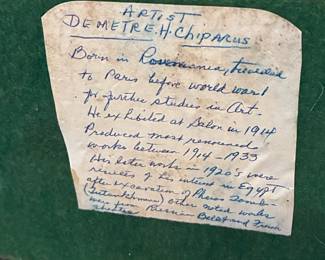 ARTIST
DEMETRE.H.CHIPARUS
Born in Roumania, traveled
to Paris before world war 1
for further studies in Art-
He exhibited at Salon in 1914
Produced most renowned
works between 1914-1933
His later works in 1920's were
results of his interest in Egypt
after excavation of Pharos Tomb-
(Tutankhamun) other noted works
were from Russian Ballet and French
theatre